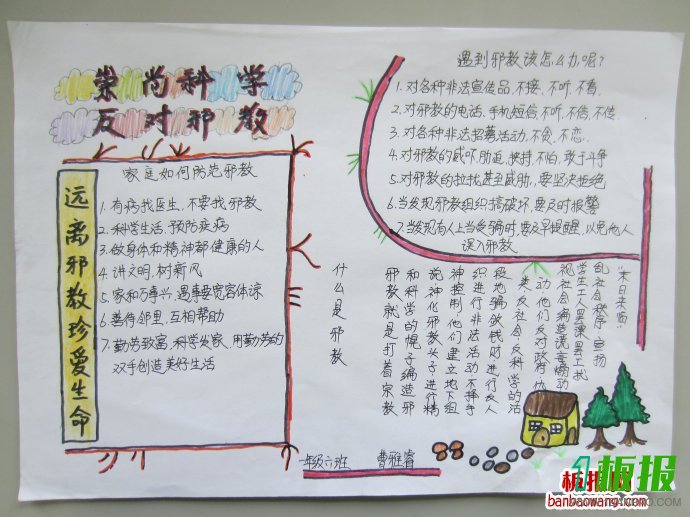 崇尚科学
反对邪教
远离邪教珍爱生命
家庭如何防范邪教
1.有病找医生,不要找邪教
2.科学生活,预防疾病
3.做身体和精神都健康的人
4.讲文明,树新风
5.家和万事兴,遇事要宽容体谅
6.善待邻里,互相帮助
7.勤劳致富,科学发家,用勤劳的
双手创造美好生活
遇到邪教该怎么办呢?
1.对各种非法宣传品,不接、不听、不看.
2.对邪教的电话、手机短信不听、不信、不传.
3.对各种非法招募活动,不贪、不恋.
4.对邪教的威吓、胁迫、挟持,不怕,敢于斗争
5.对邪教的拉拢甚至威胁,要坚决拒绝
6.当发现邪教组织搞破坏,要及时报警
7.当发现有人上当受骗时,要及早提醒,以免他人
误入邪教.
什么是邪教
邪教就是打着宗教
和科学的幌子编造邪
说神化邪教头子进行精
神控制他们建立地下组
织进行非法活动不择手
段地骗敛钱财进行反人
类反社会反科学的活
动他们反对政府仇
视社会编造谎言煽动
学生工人罢课罢工扰
乱社会秩序宣扬
"末日来临"
一年级六班
曹雅睿
板报网
banbaowang.com
板报